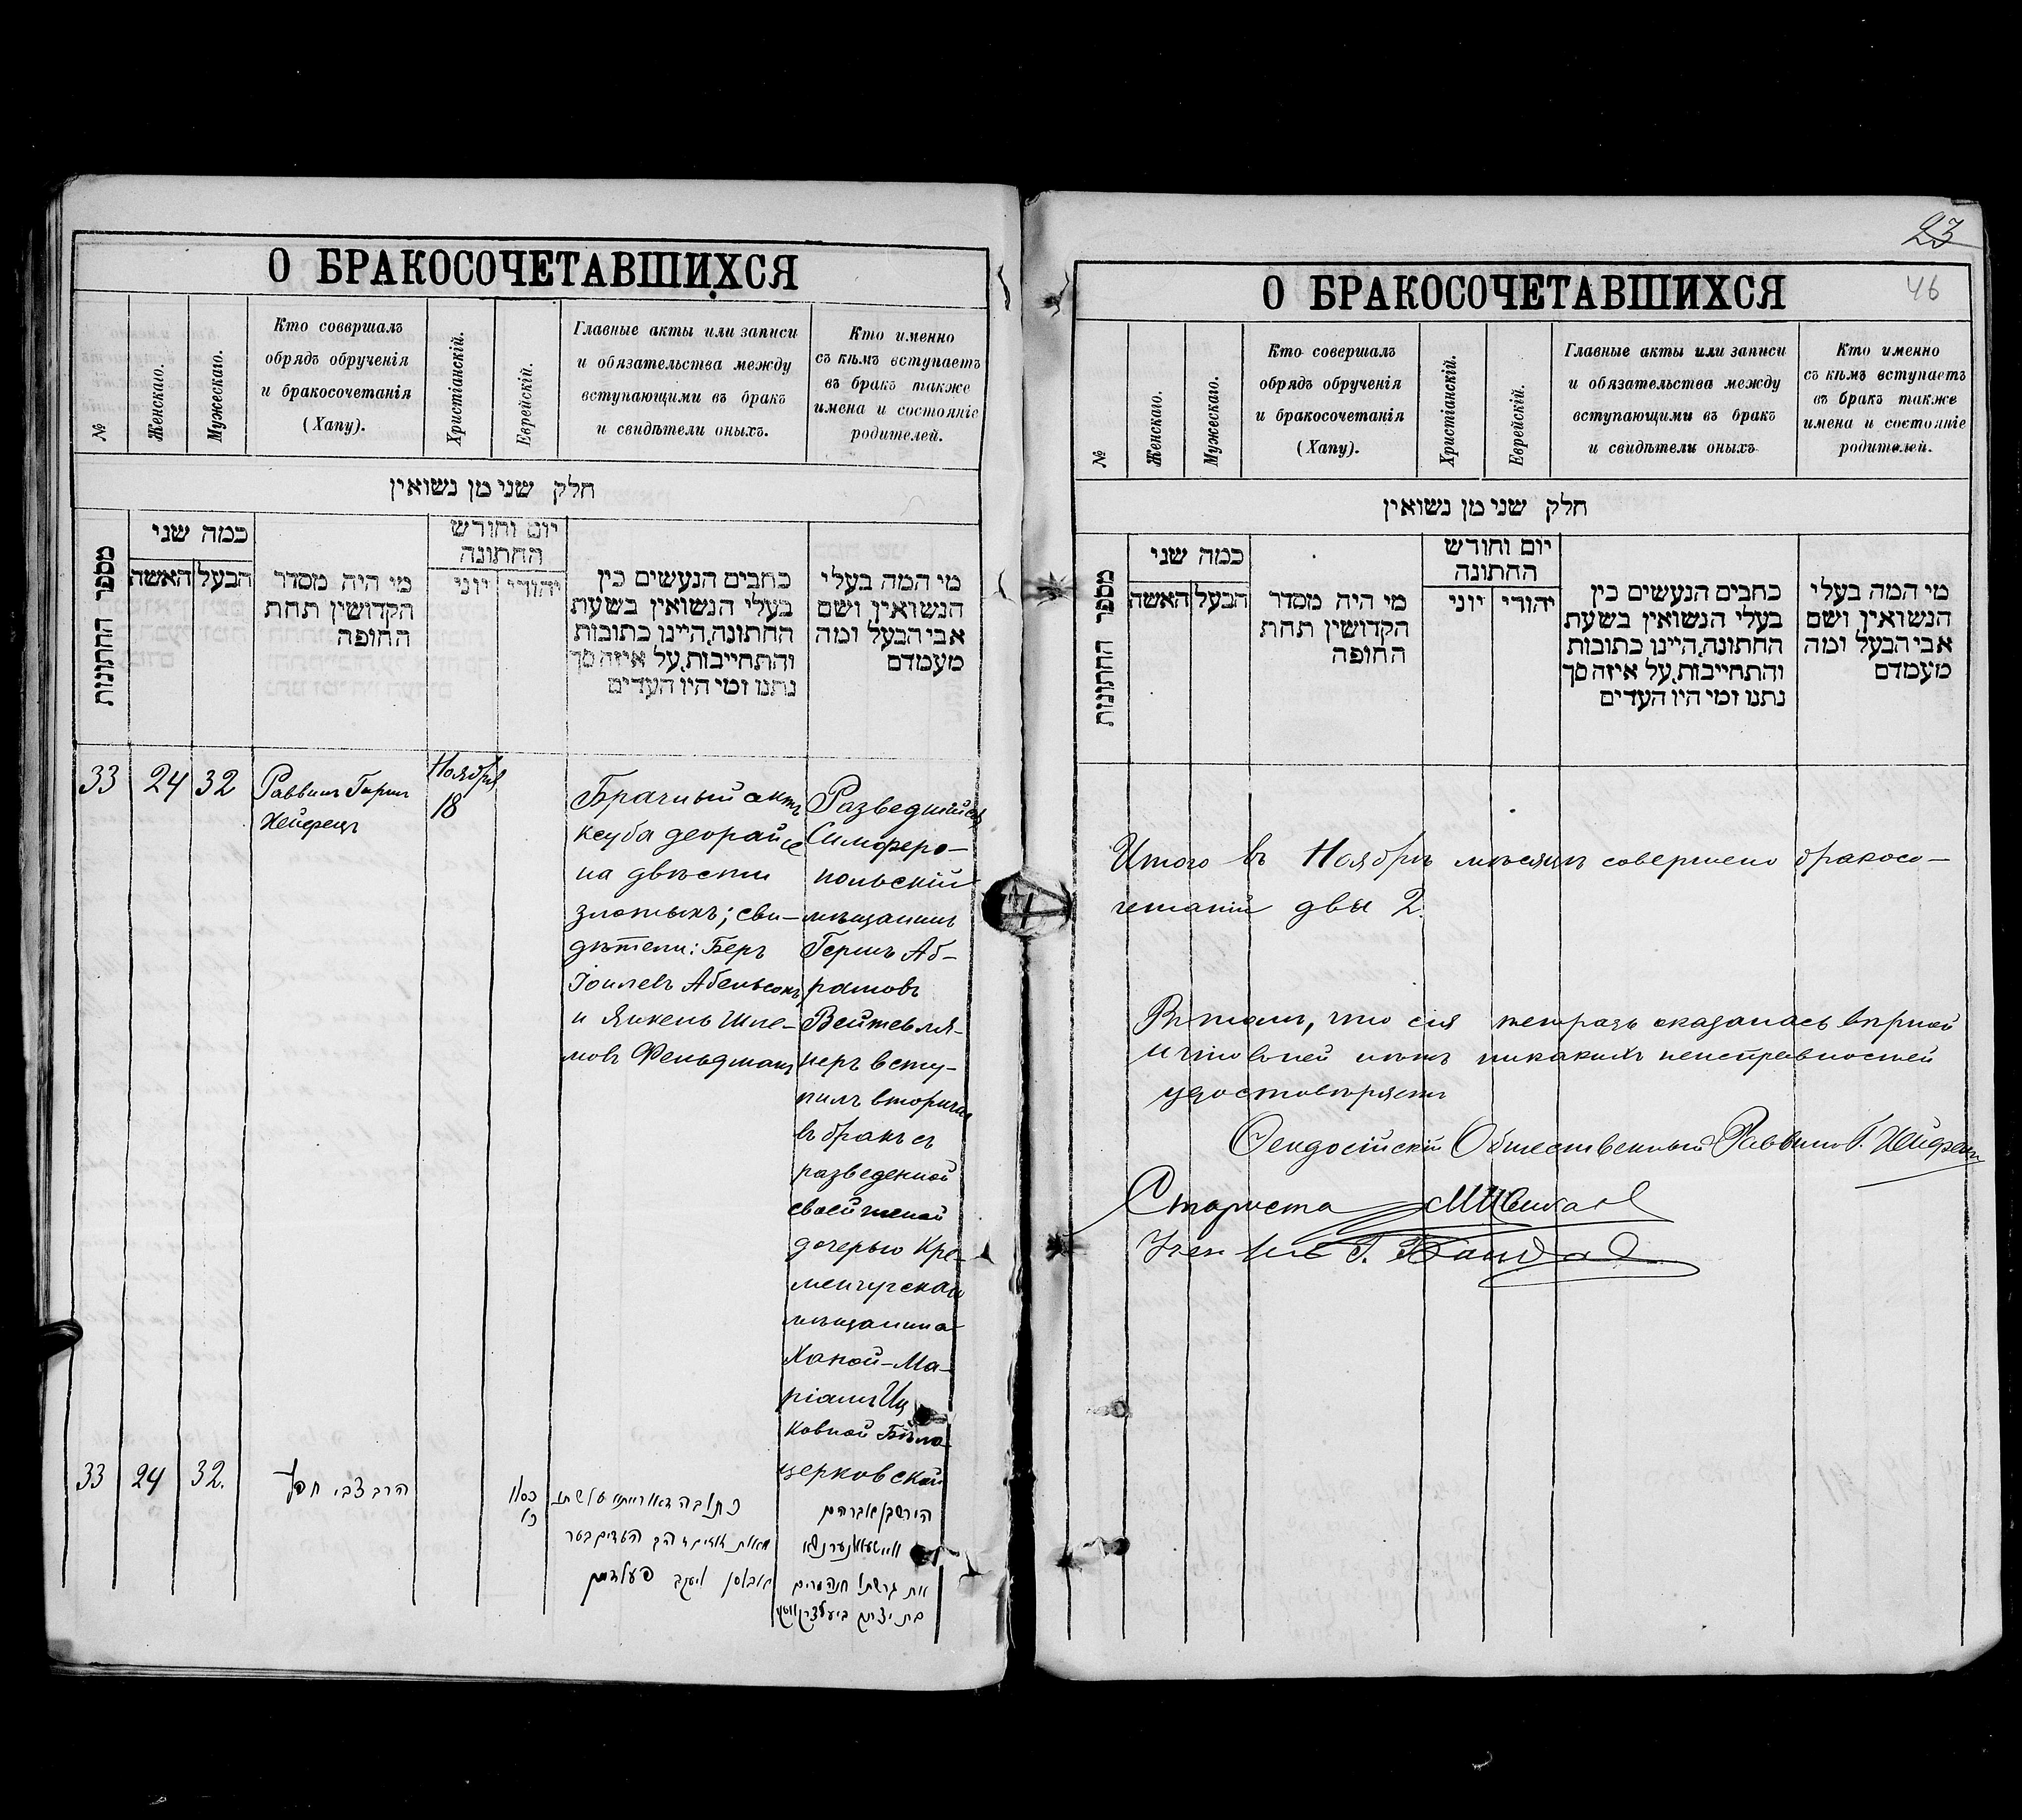 О БРАКОСОЧЕТАВШИХСЯ
№
Женскаго.
Мужескаго.
Кто совершалъ
обрядъ обрученія
и бракосочетанія
(Хапу).
Христіанскій.
Еврейскій.
Главные акты или записи
и обязательства между
вступающими въ бракъ
и свидѣтели оныхъ.
Кто именно
съ кѣмъ вступаетъ
въ бракъ также
имена и состояніе
родителей.
חלק שני מן נשואין
מספר החתונות
כמה שני
האשה
הבעל
מי היה מסדר
הקדושין תחת
החופה
יום וחודש
החתונה
יוני
יהודי
כתבים הנעשים בין
בעלי הנשואין בשעת
החתונה, היינו כתובות
והתחייבות, על איזה סך
נתנו ומי היו העדים
מי המה בעלי
הנשואין ושם
אבי הבעל ומה
מעמדם
33
24
32
Раввинъ Гирш
Хейфецъ
Ноября
18
Брачный актъ
ксуба деорайсе
на двѣсти
злотыхъ; сви-
дѣтели: Беръ
Іоилевъ Абельсонъ
и Янкель Шле-
мовъ Фельдманъ
Разведшійся
Симферо-
польскій
мѣщанинъ
Гершъ Аб-
рамовъ
всту-
пилъ вторично
въ бракъ съ
разведенной
своей женой
дочерью Кре-
менчугскаго
мѣщанина
Ханой-Ма-
ріамъ Иц
ковной Бѣло-
церковской
33
24
32.
הרב צבי חפץ
כסלו
כתובה דאורייתא
מאת העדים בער
יעקב פעלדמן
הירש בן אברהם
את גרשתו חנה מרים
בת יצחק
О БРАКОСОЧЕТАВШИХСЯ
23
46
№
Женскаго.
Мужескаго.
Кто совершалъ
обрядъ обрученія
и бракосочетанія
(Хапу).
Христіанскій.
Еврейскій.
Главные акты или записи
и обязательства между
вступающими въ бракъ
и свидѣтели оныхъ.
Кто именно
съ кѣмъ вступаетъ
въ бракъ также
имена и состояніе
родителей.
חלק שני מן נשואין
מספר החתונות
כמה שני
האשה
הבעל
מי היה מסדר
הקדושין תחת
החופה
יום וחודש
החתונה
יוני
יהודי
כתבים הנעשים בין
בעלי הנשואין בשעת
החתונה, היינו כתובות
והתחייבות, על איזה סך
נתנו ומי היו העדים
מי המה בעלי
הנשואין ושם
אבי הבעל ומה
מעמדם
Итого въ Ноябрѣ мѣсяцѣ совершено бракосо-
четаній два 2.
Въ томъ, что сія тетрадь оказалась вѣрной
и что въ ней нѣтъ никакихъ неисправностей
удостовѣряетъ
Ѳеодосійскій Общественный Раввинъ Г. Хейфецъ
Староста
Г.